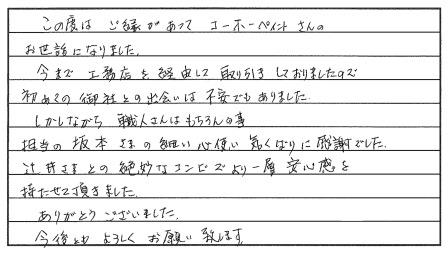 この度は ご縁があって コーホーペイントさんの
お世話になりました。
今まで 工務店を経由して取り引きしておりましたので
初めての御社との出会いは不安でもありました。
しかしながら 職人さんはもちろんの事
担当の坂本さまの細い心使い気くばりに感謝でした。
辻井さまとの絶妙なコンビでより一層安心感を
持たせて頂きました。
ありがとうございました。
今後とも よろしくお願い致します。